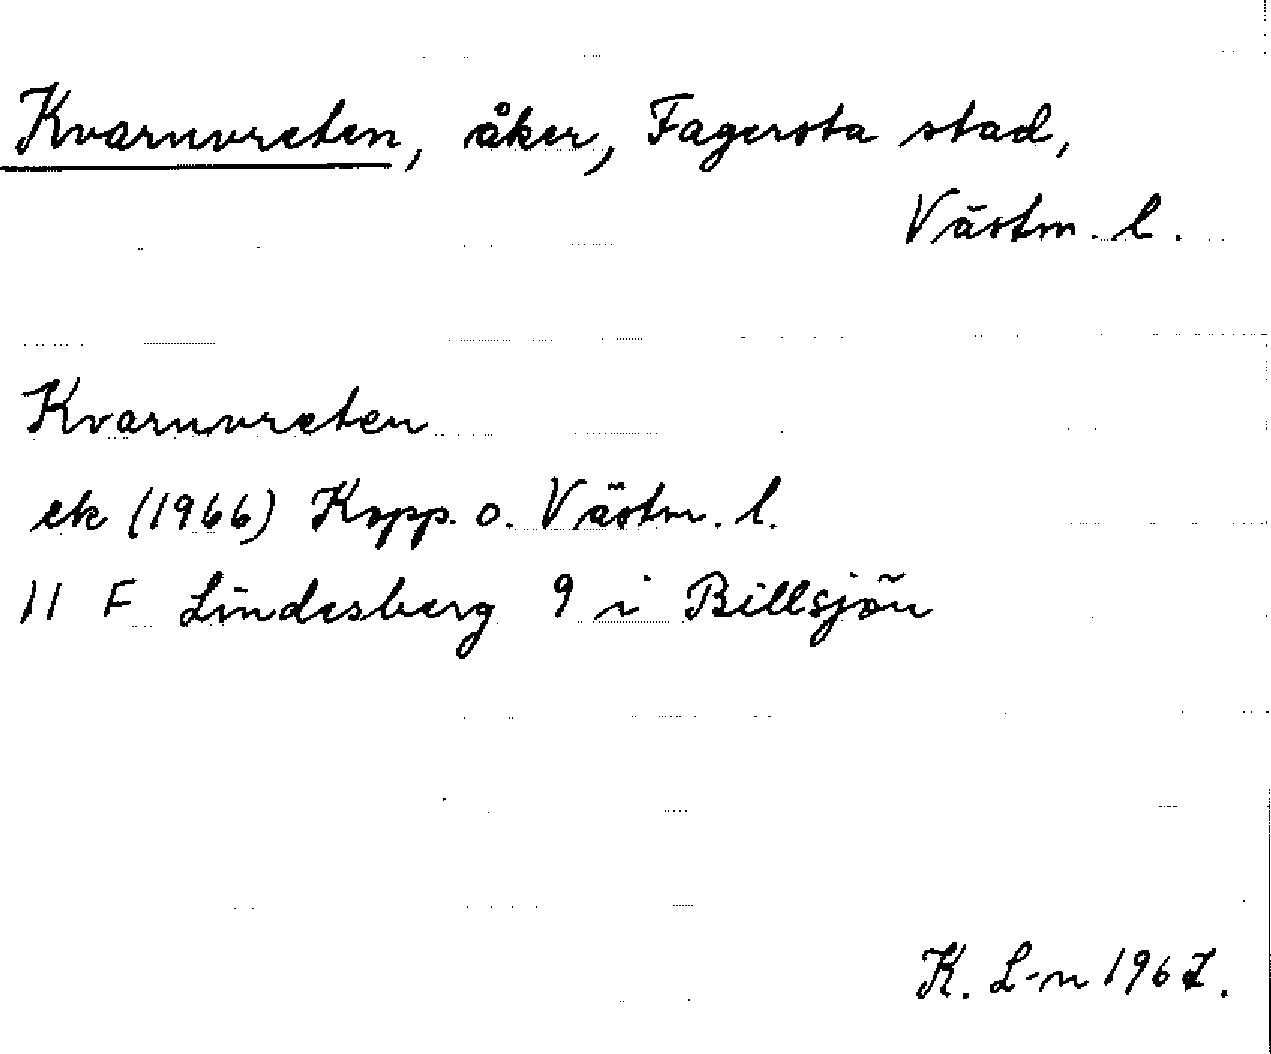 Kvarnvreten, åker, Fagersta stad,
Västm. l.
Kvarnvreten
ek (1966) Kopp. o. Västm. l.
11 F Lindesberg 9 i Billsjön
K. L-n 1967.